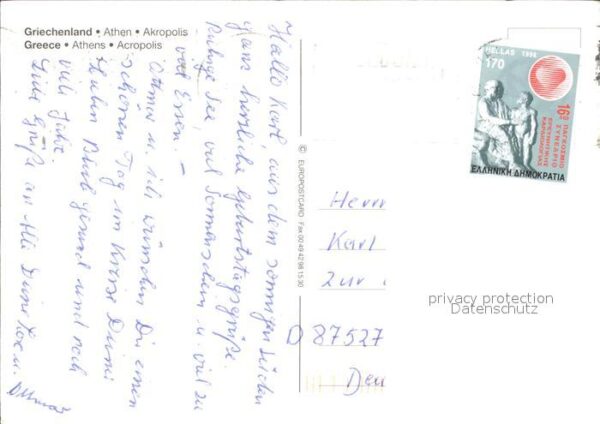 Griechenland • Athen • Akropolis
Greece • Athens • Acropolis
Hallo Karl aus dem sonnigen Süden
ganz herzliche Geburtstagsgrüße.
Ruhige See viel Sonnenschein u. viel zu
viel Essen. –
Othmar u. ich wünschen Dir einen
schönen Tag im Kreise Deiner
Lieben Bleib gesund und noch
viele Jahre.
Liebe Grüße an Alle Deine
© EUROPOSTCARD Fax 00 49 42 98 15 30
HELLAS 1996
170
16º ΠΑΓΚΟΣΜΙΟ
ΣΥΝΕΔΡΙΟ
ΕΡΕΥΝΗΤΙΚΗΣ
ΚΑΡΔΙΟΛΟΓΙΑΣ
ΕΛΛΗΝΙΚΗ ΔΗΜΟΚΡΑΤΙΑ
Herrn
Karl
Zur
D 87527
Deu
privacy protection
Datenschutz